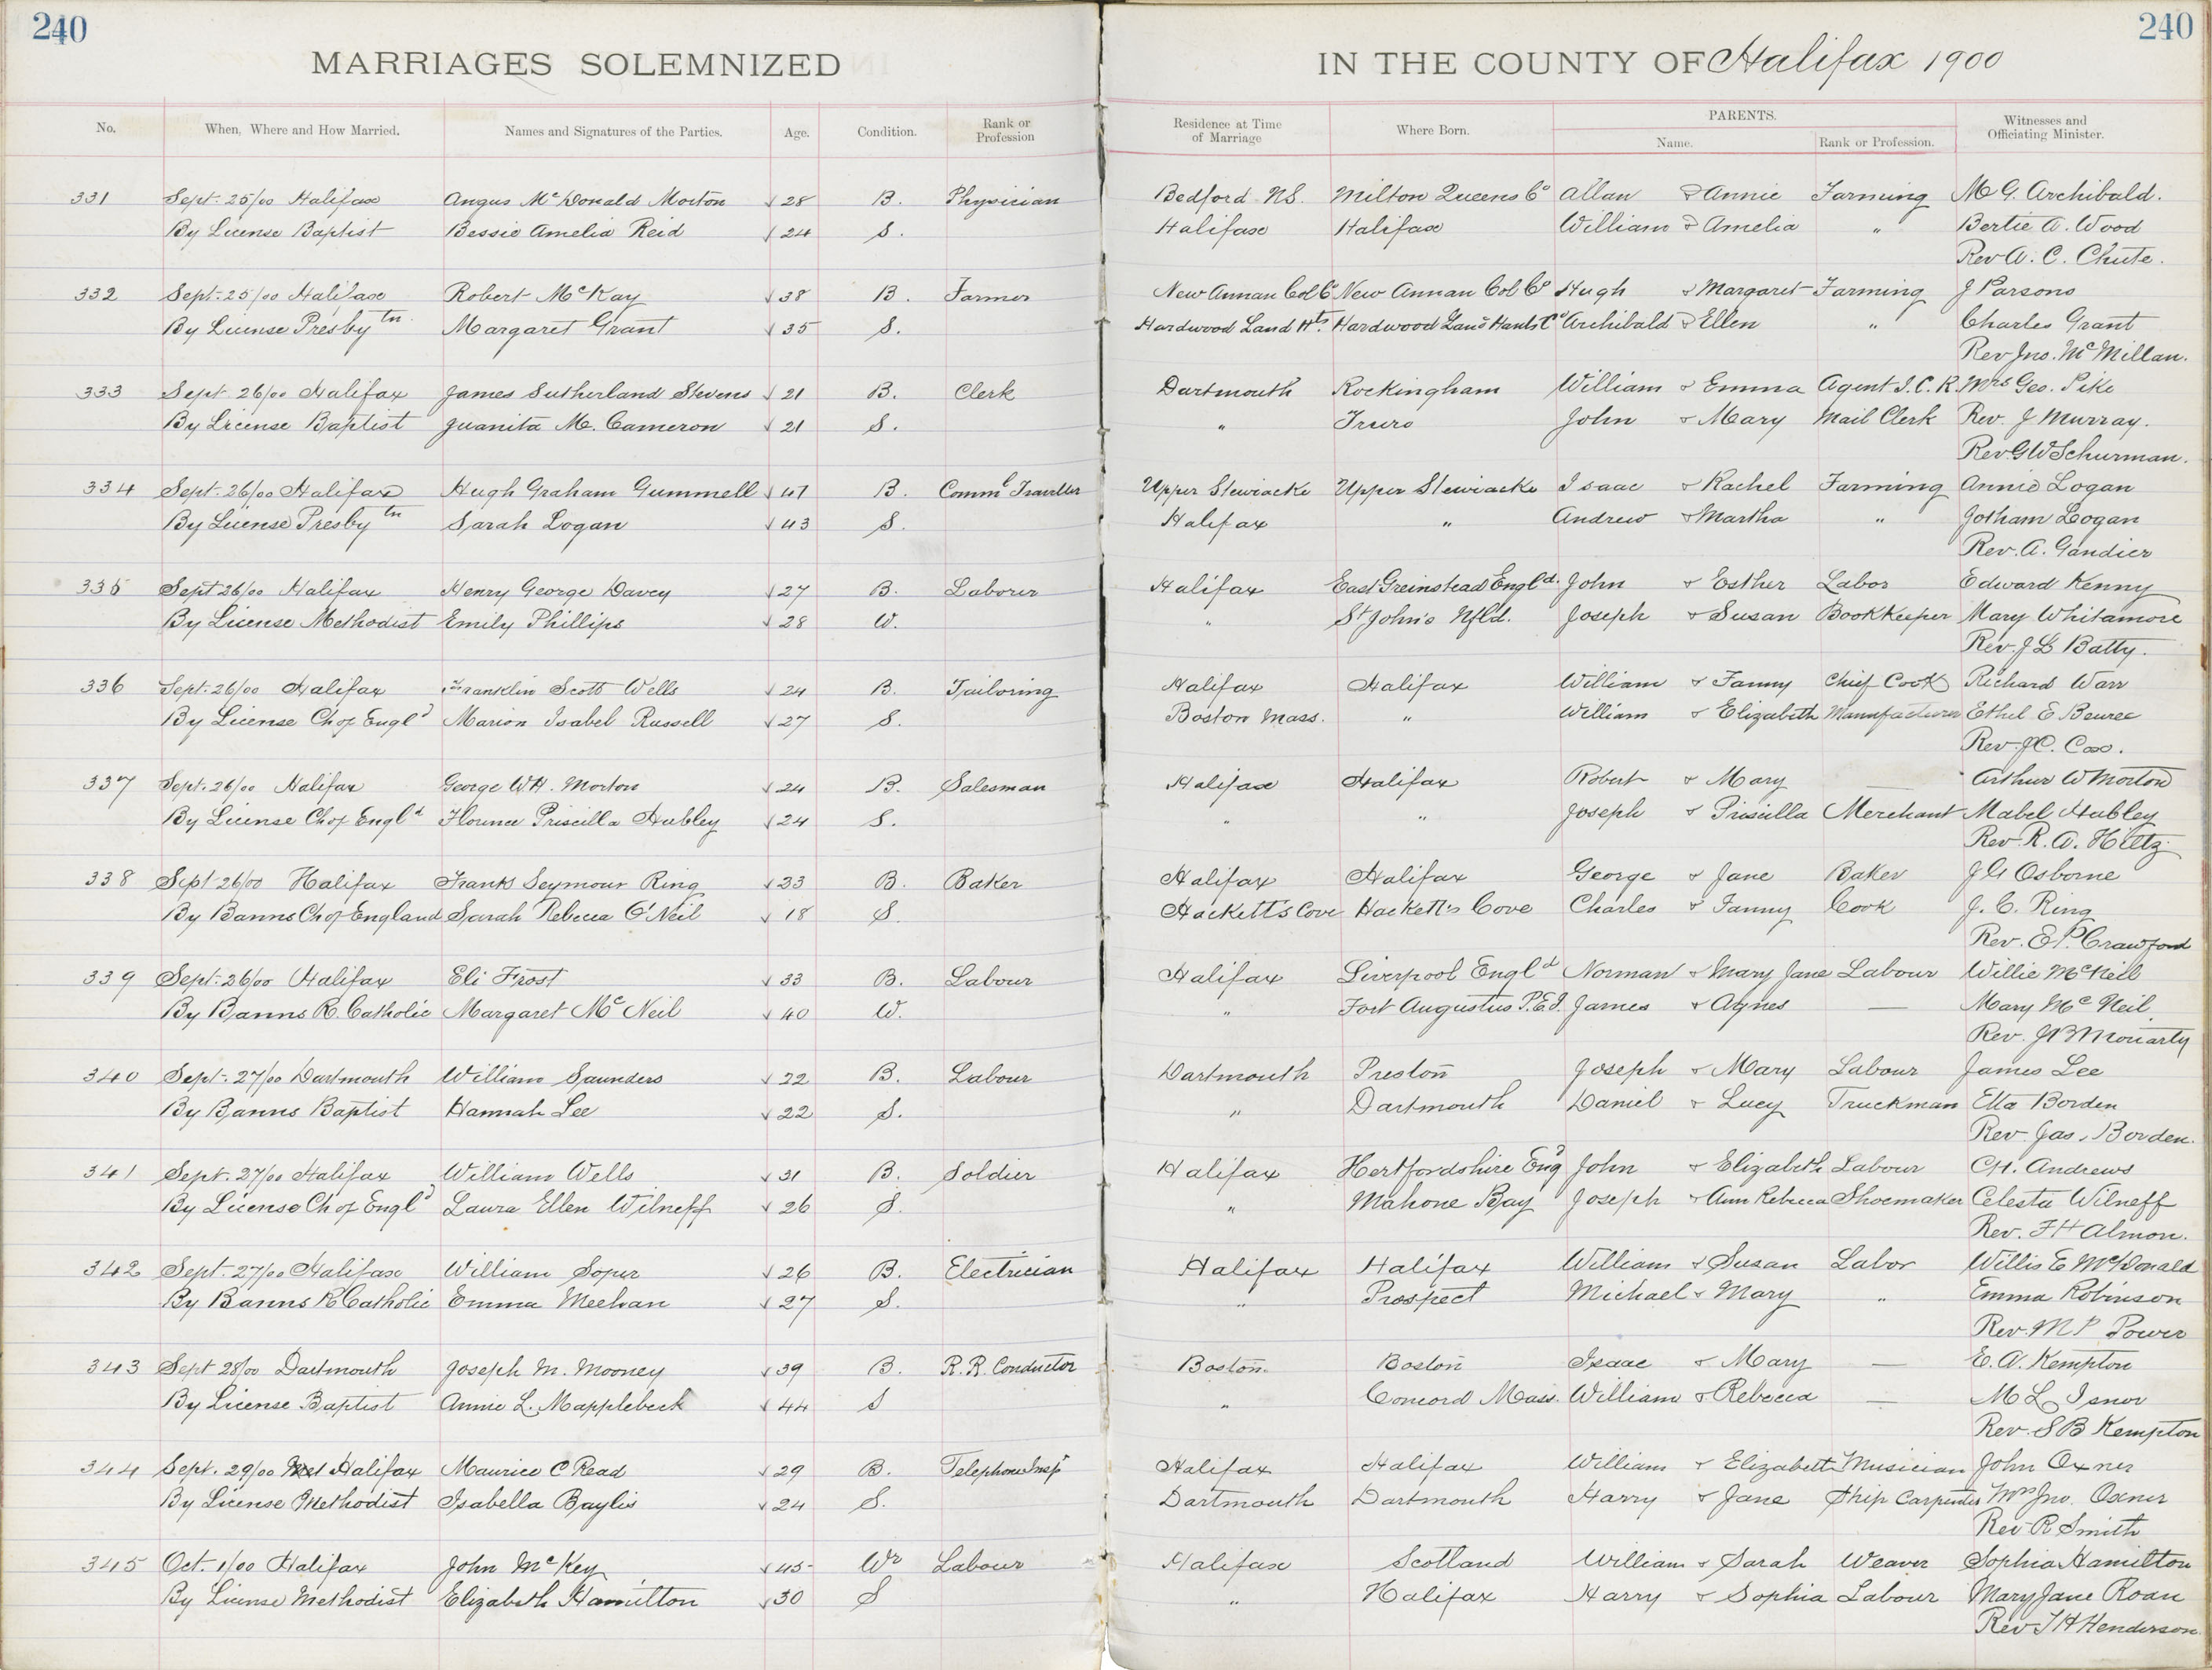 240 240
MARRIAGES SOLEMNIZED IN THE COUNTY OF Halifax 1900
No. When, Where and How Married. Names and Signatures of the Parties. Age. Condition. Rank or Profession Residence at Time of Marriage Where Born. PARENTS. Name. Rank or Profession. Witnesses and Officiating Minister.
331 Sept. 25/00 Halifax Angus McDonald Morton √ 28 B. Physician Bedford N.S. Milton Queens Co Allan & Annie Farming M G. Archibald.
By License Baptist Bessie Amelia Reid √ 24 S. Halifax Halifax William & Amelia " Bertie A. Wood
Rev A. C. Chute.
332 Sept. 25/00 Halifax Robert McKay √ 38 B. Farmer New Annan Col Co New Annan Col Co Hugh & Margaret Farming J Parsons
By License Presbytn. Margaret Grant √ 35 S. Hardwood Land Hts. Hardwood Land Hants Co Archibald & Ellen " Charles Grant
Rev Jno. McMillan.
333 Sept 26/00 Halifax James Sutherland Stevens √ 21 B. Clerk Dartmouth Rockingham William & Emma Agent I.C.R. Mrs Geo. Pike
By License Baptist Juanita M. Cameron √ 21 S. " Truro John & Mary Mail Clerk Rev. J Murray.
Rev G W Schurman.
334 Sept. 26/00 Halifax Hugh Graham Gummell √ 47 B. Comml Traveller Upper Stewiacke Upper Stewiacke Isaac & Rachel Farming Annie Logan
By License Presbytn Sarah Logan √ 43 S. Halifax " Andrew & Martha " Jotham Logan
Rev. A. Gandier
335 Sept 26/00 Halifax Henry George Davey √ 27 B. Laborer Halifax East Greinstead Engld. John & Esther Labor Edward Kenny
By License Methodist Emily Phillips √ 28 W. " St John's Nfld. Joseph & Susan Bookkeeper Mary Whitamore
Rev. J L Batty.
336 Sept. 26/00 Halifax Franklin Scott Wells √ 24 B. Tailoring Halifax Halifax William & Fanny Chief Cook Richard Warr
By License Ch of Engld Marion Isabel Russell √ 27 S. Boston Mass. " William & Elizabeth Manufacturer Ethel E
Rev. J C. Cox.
337 Sept. 26/00 Halifax George W H. Morton √ 24 B. Salesman Halifax Halifax Robert & Mary — Arthur W Morton
By License Ch of Engld Florence Priscilla Hubley √ 24 S. " " Joseph & Priscilla Merchant Mabel Hubley
Rev. R. A. Hiltz
338 Sept 26/00 Halifax Frank Seymour Ring √ 23 B. Baker Halifax Halifax George & Jane Baker J G Osborne
By Banns Ch of England Sarah Rebecca O'Neil √ 18 S. Hackett's Cove Hackett's Cove Charles & Fanny Cook J. C. Ring
Rev. E P. Crawford
339 Sept. 26/00 Halifax Eli Frost √ 33 B. Labour Halifax Liverpool Engld Norman & Mary Jane Labour Willie McNeil
By Banns R. Catholic Margaret McNeil √ 40 W. " Fort Augustus P.E.I. James & Agnes — Mary McNeil
Rev. J B Moriarty
340 Sept. 27/00 Dartmouth William Saunders √ 22 B. Labour Dartmouth Preston Joseph & Mary Labour James Lee
By Banns Baptist Hannah Lee √ 22 S. " Dartmouth Daniel & Lucy Truckman Etta Borden
Rev. Jas. Borden.
341 Sept. 27/00 Halifax William Wells √ 31 B. Soldier Halifax Hertfordshire Eng John & Elizabeth Labour C H. Andrews
By License Ch of Engld Laura Ellen Wilneff √ 26 S. " Mahone Bay Joseph & Ann Rebecca Shoemaker Celesta Wilneff
Rev. F H Almon.
342 Sept. 27/00 Halifax William Soper √ 26 B. Electrician Halifax Halifax William & Susan Labor Willis E McDonald
By Banns R Catholic Emma Meehan √ 27 S. " Prospect Michael & Mary " Emma Robinson
Rev. M P Power
343 Sept 28/00 Dartmouth Joseph M. Mooney √ 39 B. R.R. Conductor Boston. Boston Isaac & Mary — E. A. Kempton
By License Baptist Annie L. Mapplebeck √ 44 S " Concord Mass. William & Rebecca — M L Isnor
Rev. S B Kempton
344 Sept. 29/00 Halifax Maurice C Read √ 29 B. Telephone Inspr Halifax Halifax William & Elizabeth Musician John Oxner
By License Methodist Isabella Baylis √ 24 S. Dartmouth Dartmouth Harry & Jane Ship Carpenter Mrs Jno. Oxner
Rev R Smith
345 Oct. 1/00 Halifax John McKey √ 45 Wr Labour Halifax Scotland William & Sarah Weaver Sophia Hamilton
By License Methodist Elizabeth Hamilton √ 30 S " Halifax Harry & Sophia Labour Mary Jane Roan
Rev J H Henderson.